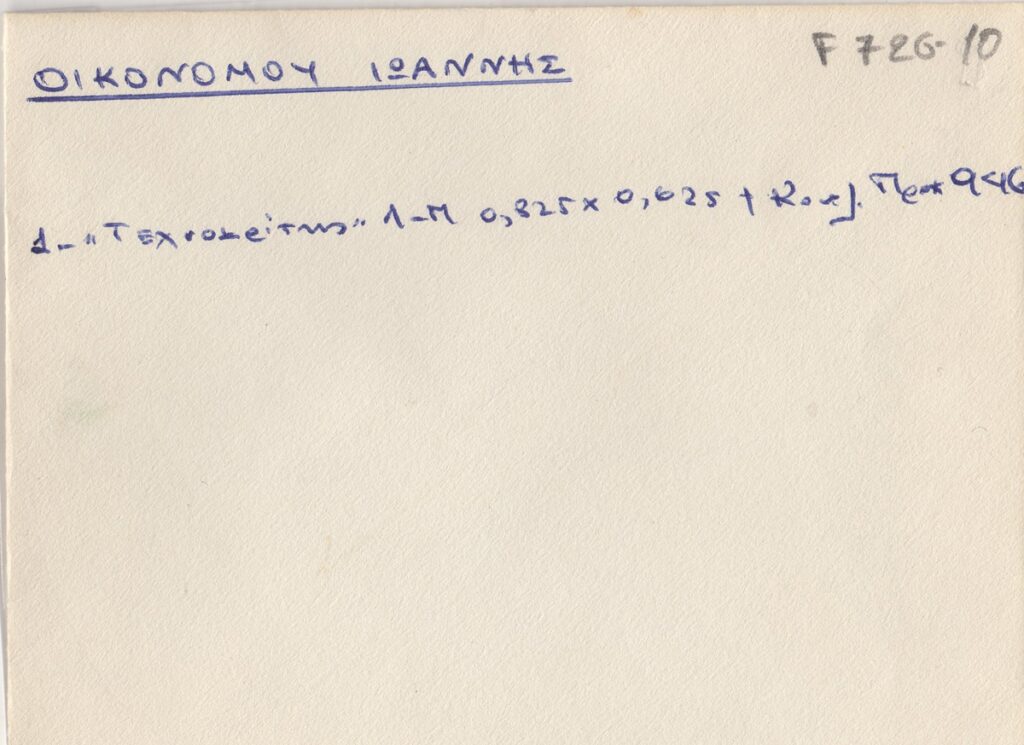 F 726-10
ΟΙΚΟΝΟΜΟΥ ΙΩΑΝΝΗΣ
1- "Τεχνοκρίτης" Λ-Μ 0,825 x 0,625 + 946